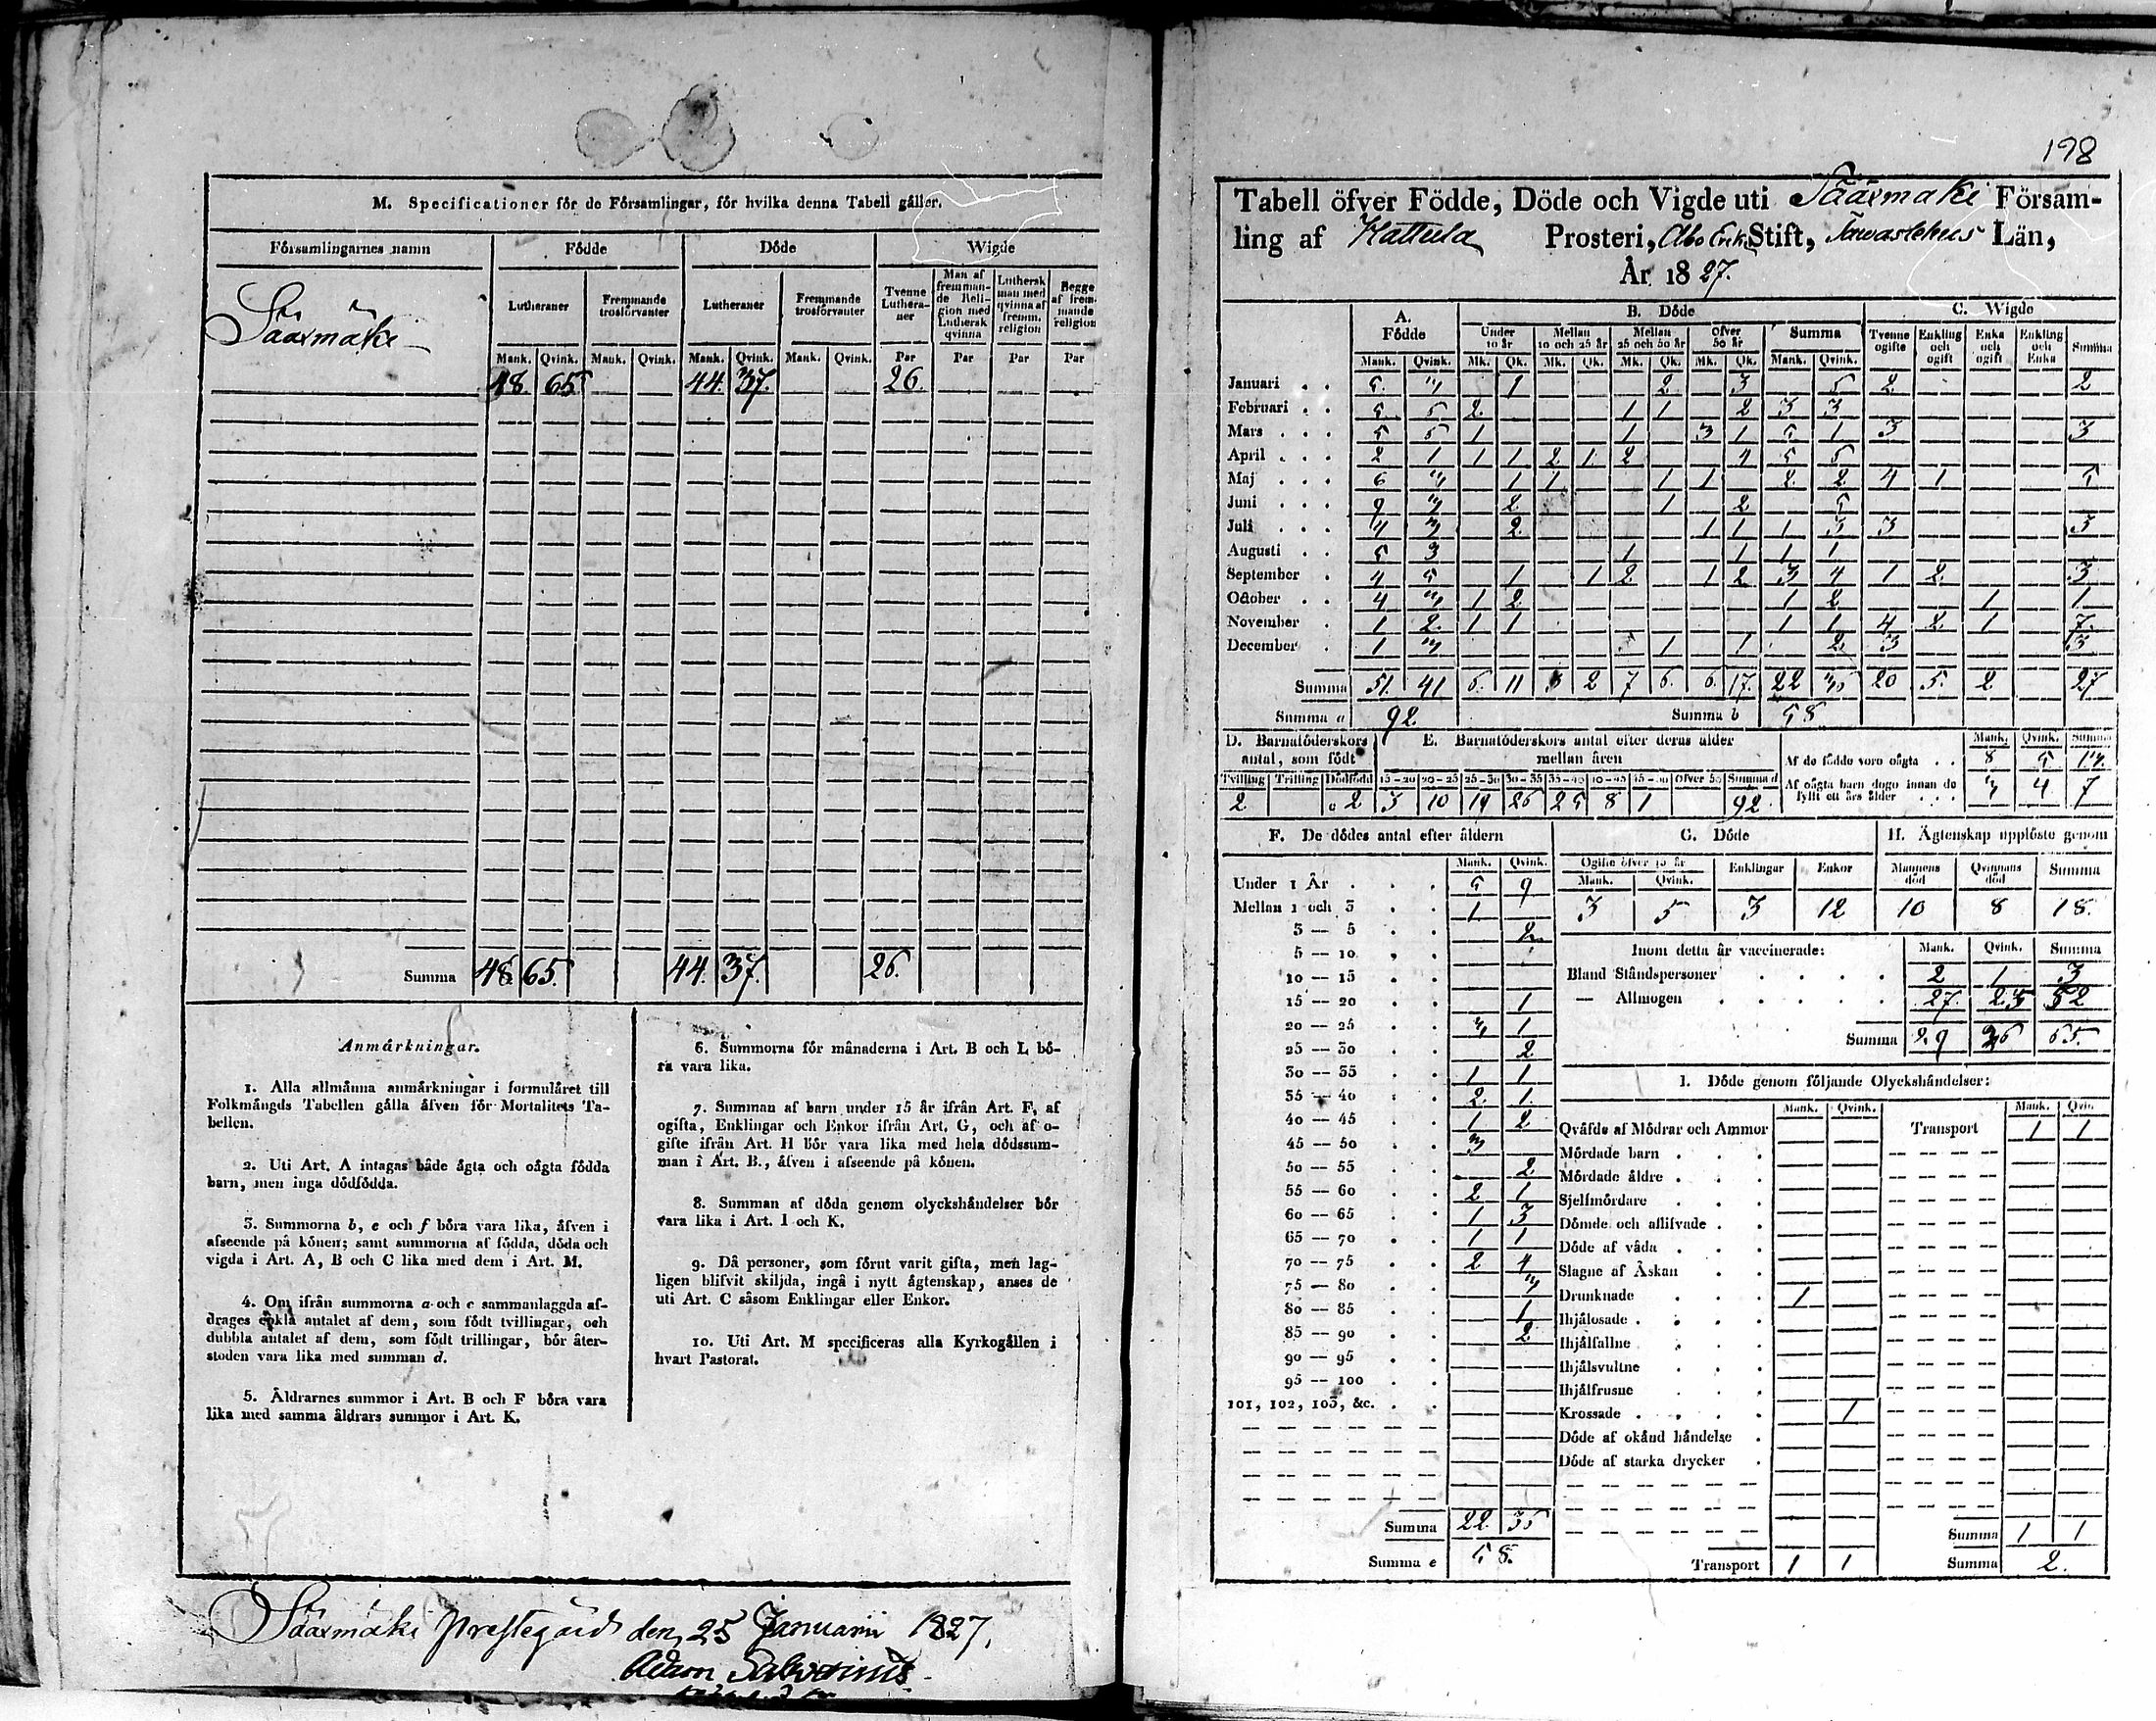 M. Specificationer för de Församlingar, för hvilka denna Tabell gäller.
Församlingarnes namn Födde Döde Wigde
Lutheraner Fremmande trosförvanter Lutheraner Fremmande trosförvanter Tvenne Lutheraner Man af fremmande Religion med Luthersk qvinna Luthersk man med qvinna af fremm. religion Begge af fremmande religion
Mank. Qvink. Mank. Qvink. Mank. Qvink. Mank. Qvink. Par Par Par Par
Sääxmäki
48. 65 44. 37. 26.
Summa 48 65. 44. 37. 26.
Anmärkningar.
1. Alla allmänna anmärkningar i formuläret till
Folkmängds Tabellen gälla äfven för Mortalitets Ta-
bellen.
2. Uti Art. A intagas både ägta och oägta födda
barn, men inga dödfödda.
3. Summorna b, e och f böra vara lika, äfven i
afseende på könen; samt summorna af födda, döda och
vigda i Art. A, B och C lika med dem i Art. M.
4. Om ifrån summorna a och c sammanlaggda af-
drages enkla antalet af dem, som födt tvillingar, och
dubbla antalet af dem, som födt trillingar, bör åter-
stoden vara lika med summan d.
5. Åldrarnes summor i Art. B och F böra vara
lika med samma åldrars summor i Art. K.
6. Summorna för månaderna i Art. B och L bö-
ra vara lika.
7. Summan af barn under 15 år ifrån Art. F, af
ogifta, Enklingar och Enkor ifrån Art. G, och af o-
gifte ifrån Art. H bör vara lika med hela dödssum-
man i Art. B., äfven i afseende på könen.
8. Summan af döda genom olyckshändelser bör
vara lika i Art. I och K.
9. Då personer, som förut varit gifta, men lag-
ligen blifvit skiljda, ingå i nytt ägtenskap, anses de
uti Art. C såsom Enklingar eller Enkor.
10. Uti Art. M specificeras alla Kyrkogällen i
hvart Pastorat.
Sääxmäki Prestegård den 25 Januarii 1827.
Adam
198
Tabell öfver Födde, Döde och Vigde uti Sääxmäki Försam-
ling af Hattula Prosteri, Åbo Erke Stift, Tawastehus Län,
År 1827.
A. Födde B. Döde C. Wigde
Under 10 år Mellan 10 och 25 år Mellan 25 och 50 år Öfver 50 år Summa Tvenne ogifte Enkling och ogift Enka och ogift Enkling och Enka Summa
Mank. Qvink. Mk. Qk. Mk. Qk. Mk. Qk. Mk. Qk. Mank. Qvink.
Januari 5. 3 1 2 3 5 2 2
Februari 5 5 2 1 1 2 3 3
Mars 5 5 1 1 3 1 5 1 3 3
April 2 1 1 1 2 1 2 4 5 5
Maj 6 3 1 1 1 1 2 2 4 1 5
Juni 9 3 2 1 2 5
Juli 4 3 2 1 1 1 3 3 3
Augusti 5 3 1 1 1 1
September 4 5 1 1 2 1 2 3 4 1 2 3
October 4 1 2 1 2 1 1
November 1 2 1 1 1 1 4 2 1 7
December 1 1 1 2 3 3
Summa 51. 41 6. 11 3 2 7 6. 6. 17. 22 36 20 5. 2 27
Summa a 92 Summa b 58
D. Barnaföderskors antal, som födt E. Barnaföderskors antal efter deras ålder mellan åren
Mank. Qvink. Summa
Af de födde voro oägta 8 5 13.
Tvilling Trilling Dödfödd 15-20 20-25 25-30 30-35 35-40 40-45 45-50 Öfver 50 Summa d
2 2 3 10 19 26 25 8 1 92
Af oägta barn dogo innan de fyllt ett års ålder 3 4 7
F. De dödes antal efter åldern
Mank. Qvink.
Under 1 År 5 9
Mellan 1 och 3 1
3 — 5 2
5 — 10
10 — 15
15 — 20 1
20 — 25 3 1
25 — 30 2
30 — 35 1 1
35 — 40 2 1
40 — 45 1 2
45 — 50 3
50 — 55 2
55 — 60 2 1
60 — 65 1 3
65 — 70 1 1
70 — 75 2 4
75 — 80 3
80 — 85 1
85 — 90 2
90 — 95
95 — 100
101, 102, 103, &c.
Summa 22 36
Summa e 58.
G. Döde
Ogifte öfver 15 år Enklingar Enkor
Mank. Qvink.
3 5 3 12
H. Ägtenskap upplöste genom
Mannens död Qvinnans död Summa
10 8 18.
Inom detta år vaccinerade: Mank. Qvink. Summa
Bland Ståndspersoner 2 1 3
— Allmogen 27. 25 52
Summa 29 26 55.
I. Döde genom följande Olyckshändelser:
Mank. Qvink. Mank. Qvin.
Qväfde af Mödrar och Ammor Transport 1 1
Mördade barn
Mördade äldre
Sjelfmördare
Dömde och aflifvade
Döde af våda
Slagne af Åskan
Drunknade 1
Ihjälosade
Ihjälfallne
Ihjälsvultne
Ihjälfrusne
Krossade 1
Döde af okänd händelse
Döde af starka drycker
Summa 1 1
Transport 1 1 Summa 2.